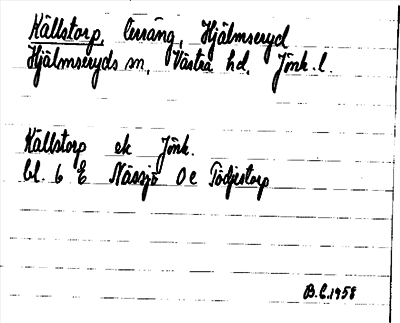 Källstorp, Hjälmseryd
Hjälmseryds sn, Västra hd, Jönk. l.
Källstorp ek Jönk.
bl. 6 E Nässjö 0 e
B.E.1958